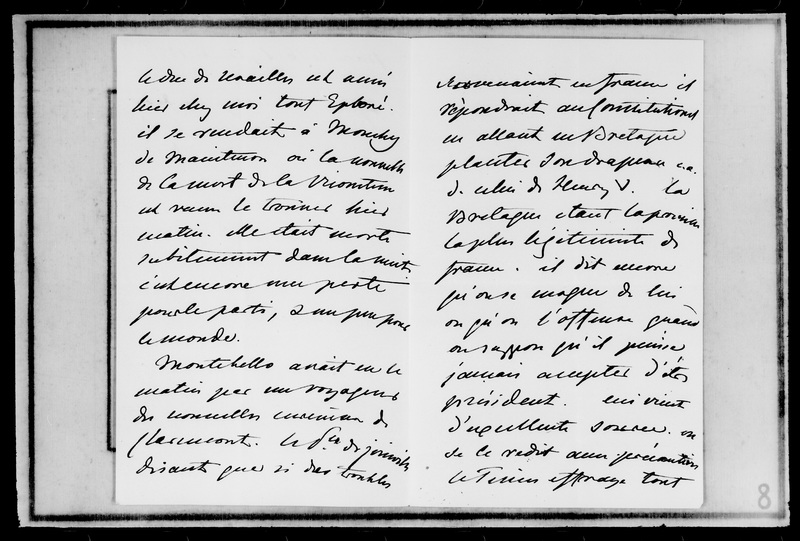 le duc de Noailles est arrivé
hier chez moi tout Eploré.
il se rendait à Mouchy
de Maintenon où la nouvelle
de la mort de la Vicomtesse
est venue le trouver hier
matin. Elle était morte
subitement dans la nuit,
c'est encore une perte
pour le parti, & un peu pour
le monde.
Montebello avait eu le
matin par un voyageur
des nouvelles de
Claremont. le Pce de joinville
disait que si des troubles
survenaient en france il
répondrait au Constitutionnel
en allant en Bretagne
planter son drapeau
celui de Henry V. la
Bretagne étant la province
la plus légitimiste de
france. il dit encore
qu'on se moque de lui
ou qu'on l'offense quand
on suppose qu'il puisse
jamais accepter d'être
président. ceci vient
d'excellente source. on
se le redit avec précaution
le Times effraye tout
8